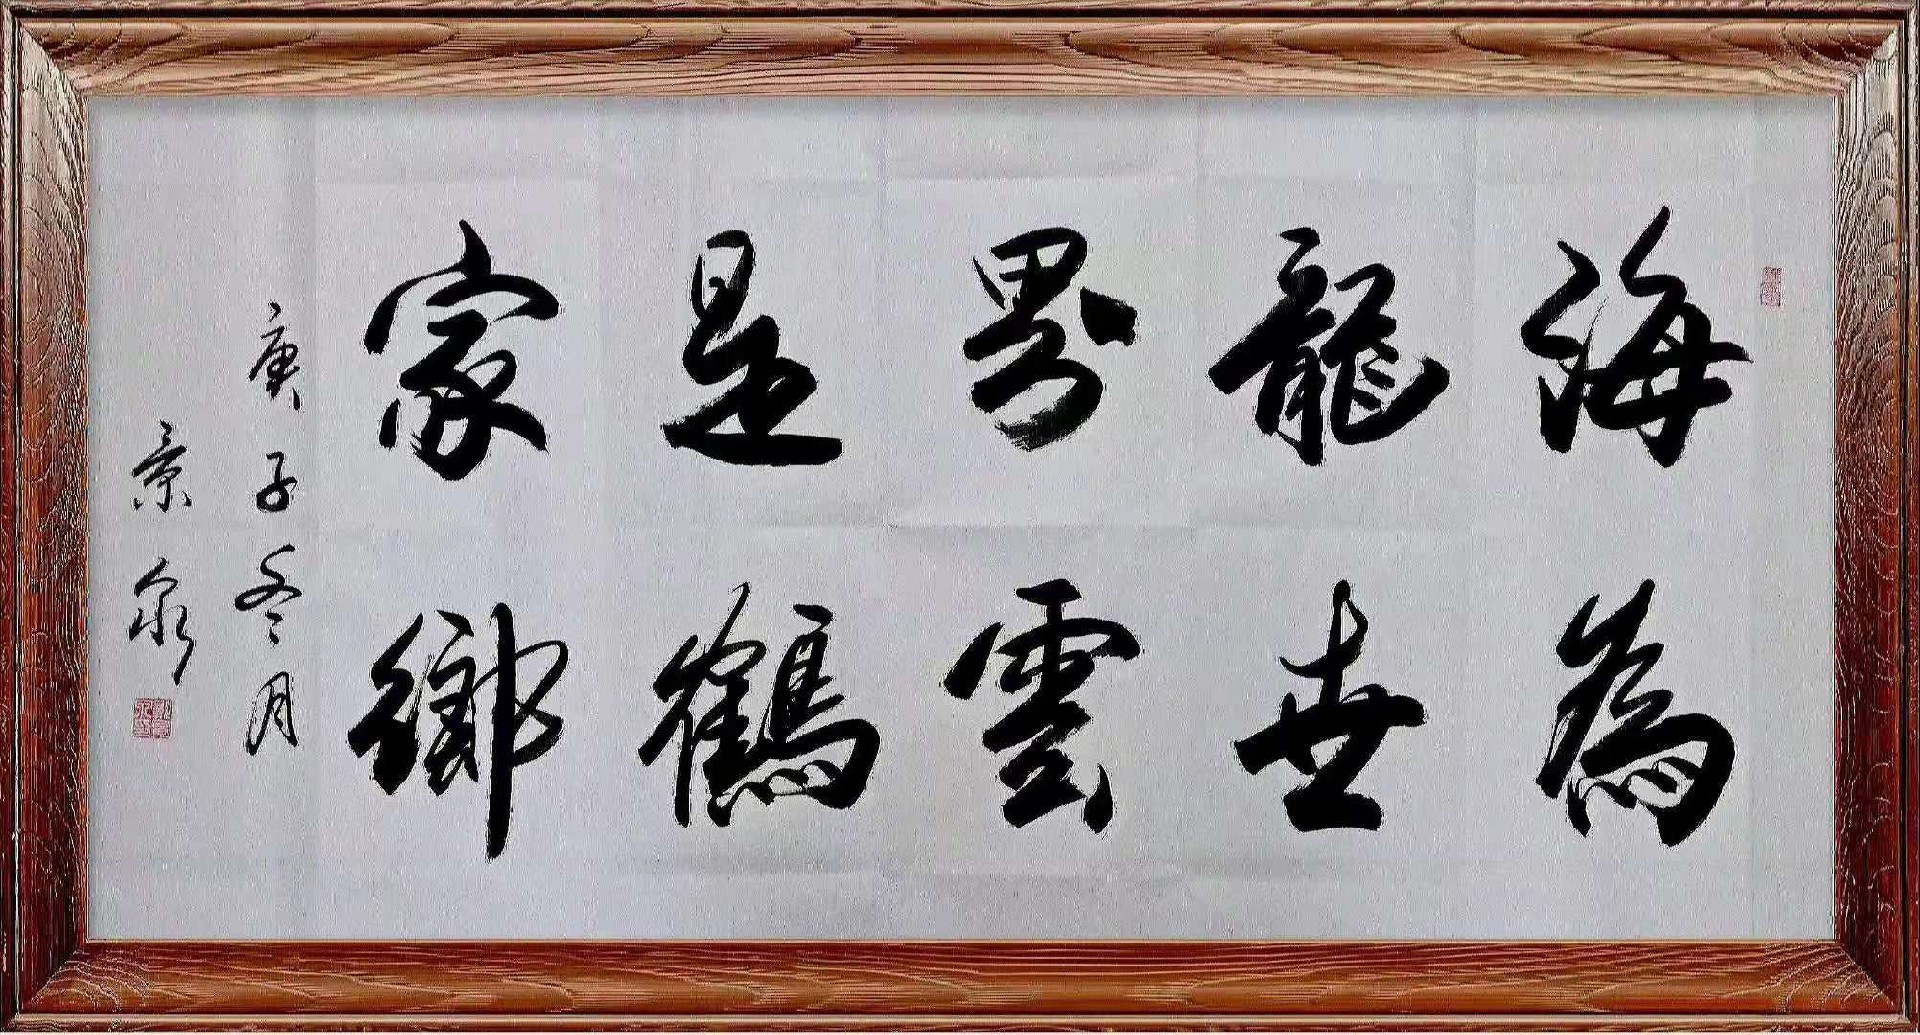 海為
龍世
界雲
是鶴
家鄉
庚子冬月
景泉